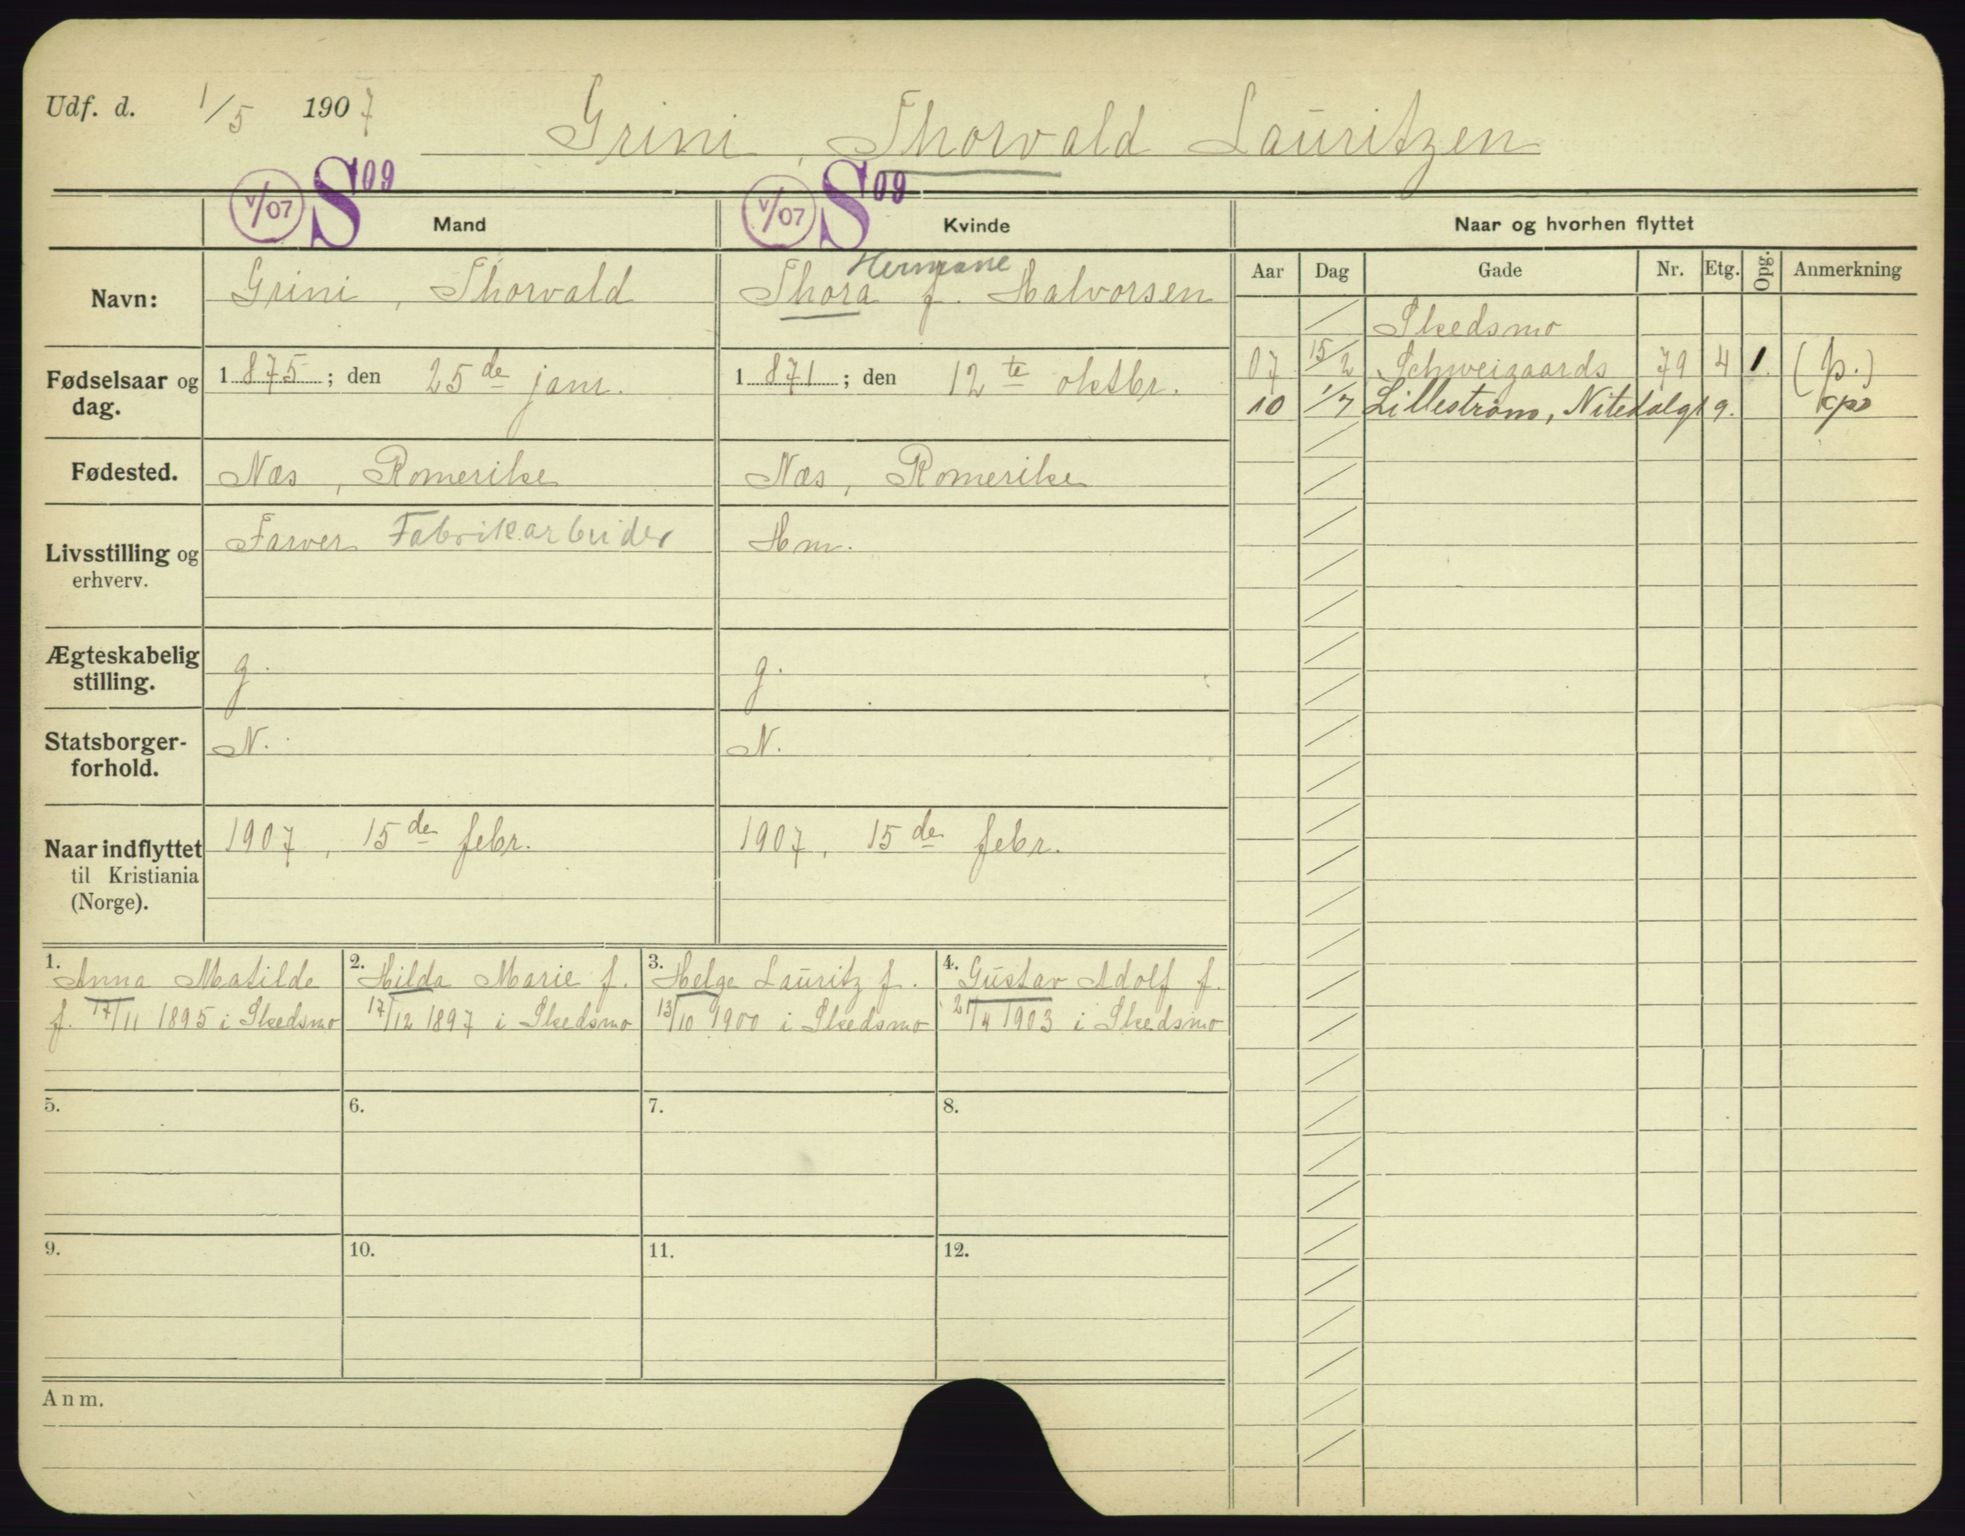 Udf. d. 1/5 1907 Grini, Thorvald Lauritzen
V/07 S 09 Mand V/07 S 09 Kvinde Naar og hvorhen flyttet
Aar Dag Gade Nr. Etg. Opg. Anmerkning
Hermane
Navn: Grini, Thorvald Thora f. Halvorsen
Skedsmo
07 15/2 Schweigaards 79 4 1. (p.)
10 1/7 Lillestrøm, Nitedalgt 9.
Fødselsaar og dag. 1 875 ; den 25de janr. 1 871 ; den 12te oktbr.
Fødested. Næs, Romerike Næs, Romerike
Livsstilling og erhverv. Farver Fabrikarbeider Hm.
Ægteskabelig stilling. g. g.
Statsborger-forhold. N. N.
Naar indflyttet til Kristiania (Norge). 1907, 15de febr. 1907, 15de febr.
1. Anna Matilde
f. 17/11 1895 i Skedsmo
2. Hilda Marie f.
17/12 1897 i Skedsmo
3. Helge Lauritz f.
13/10 1900 i Skedsmo
4. Gustav Adolf f.
21/4 1903 i Skedsmo
5. 6. 7. 8.
9. 10. 11. 12.
Anm.